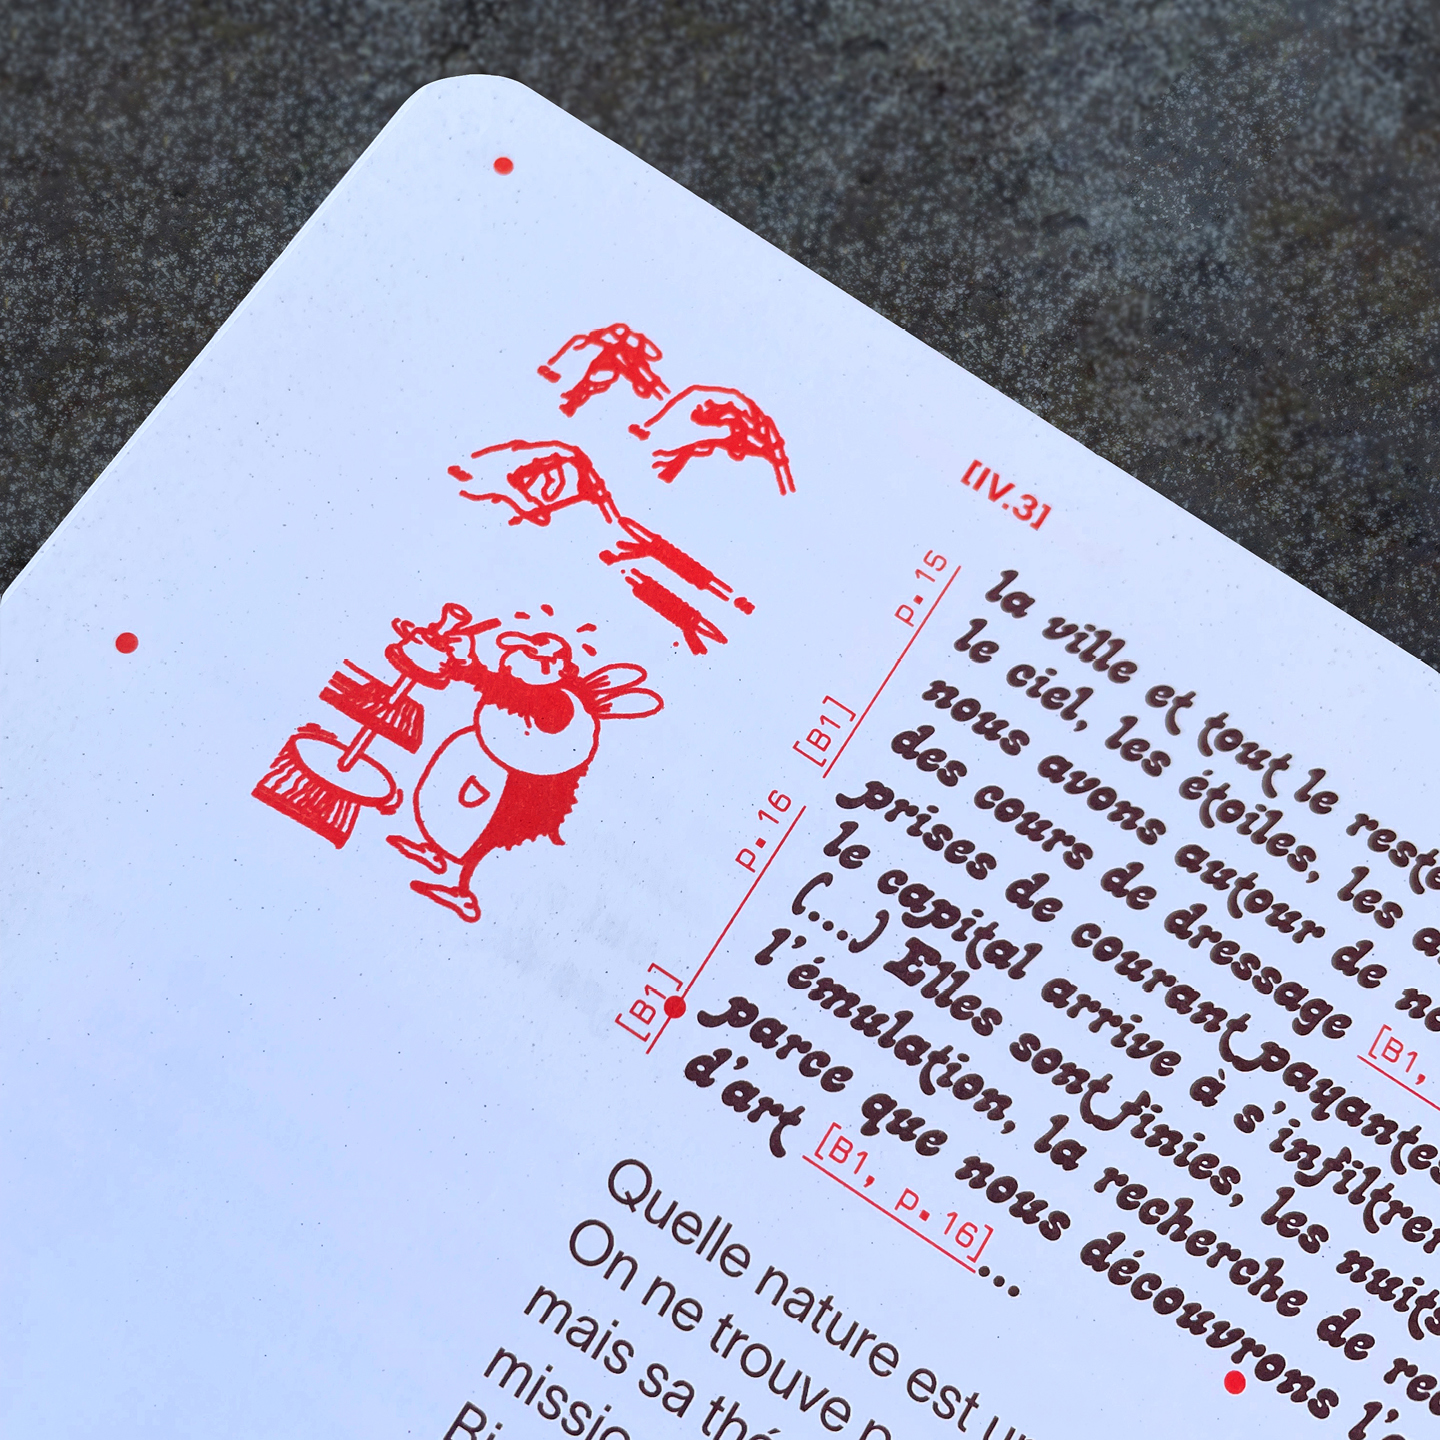 [IV.3]
p. 15
[B1]
p. 16
[B1]
la ville et tout le reste
le ciel, les étoiles, les
nous avons autour de
des cours de dressage [B1,
prises de courant payantes
le capital arrive à s'infiltrer
(...) Elles sont finies, les nuits
l'émulation, la recherche de
parce que nous découvrons
d'art [B1, p. 16]...
Quelle nature est
On ne trouve
mais sa